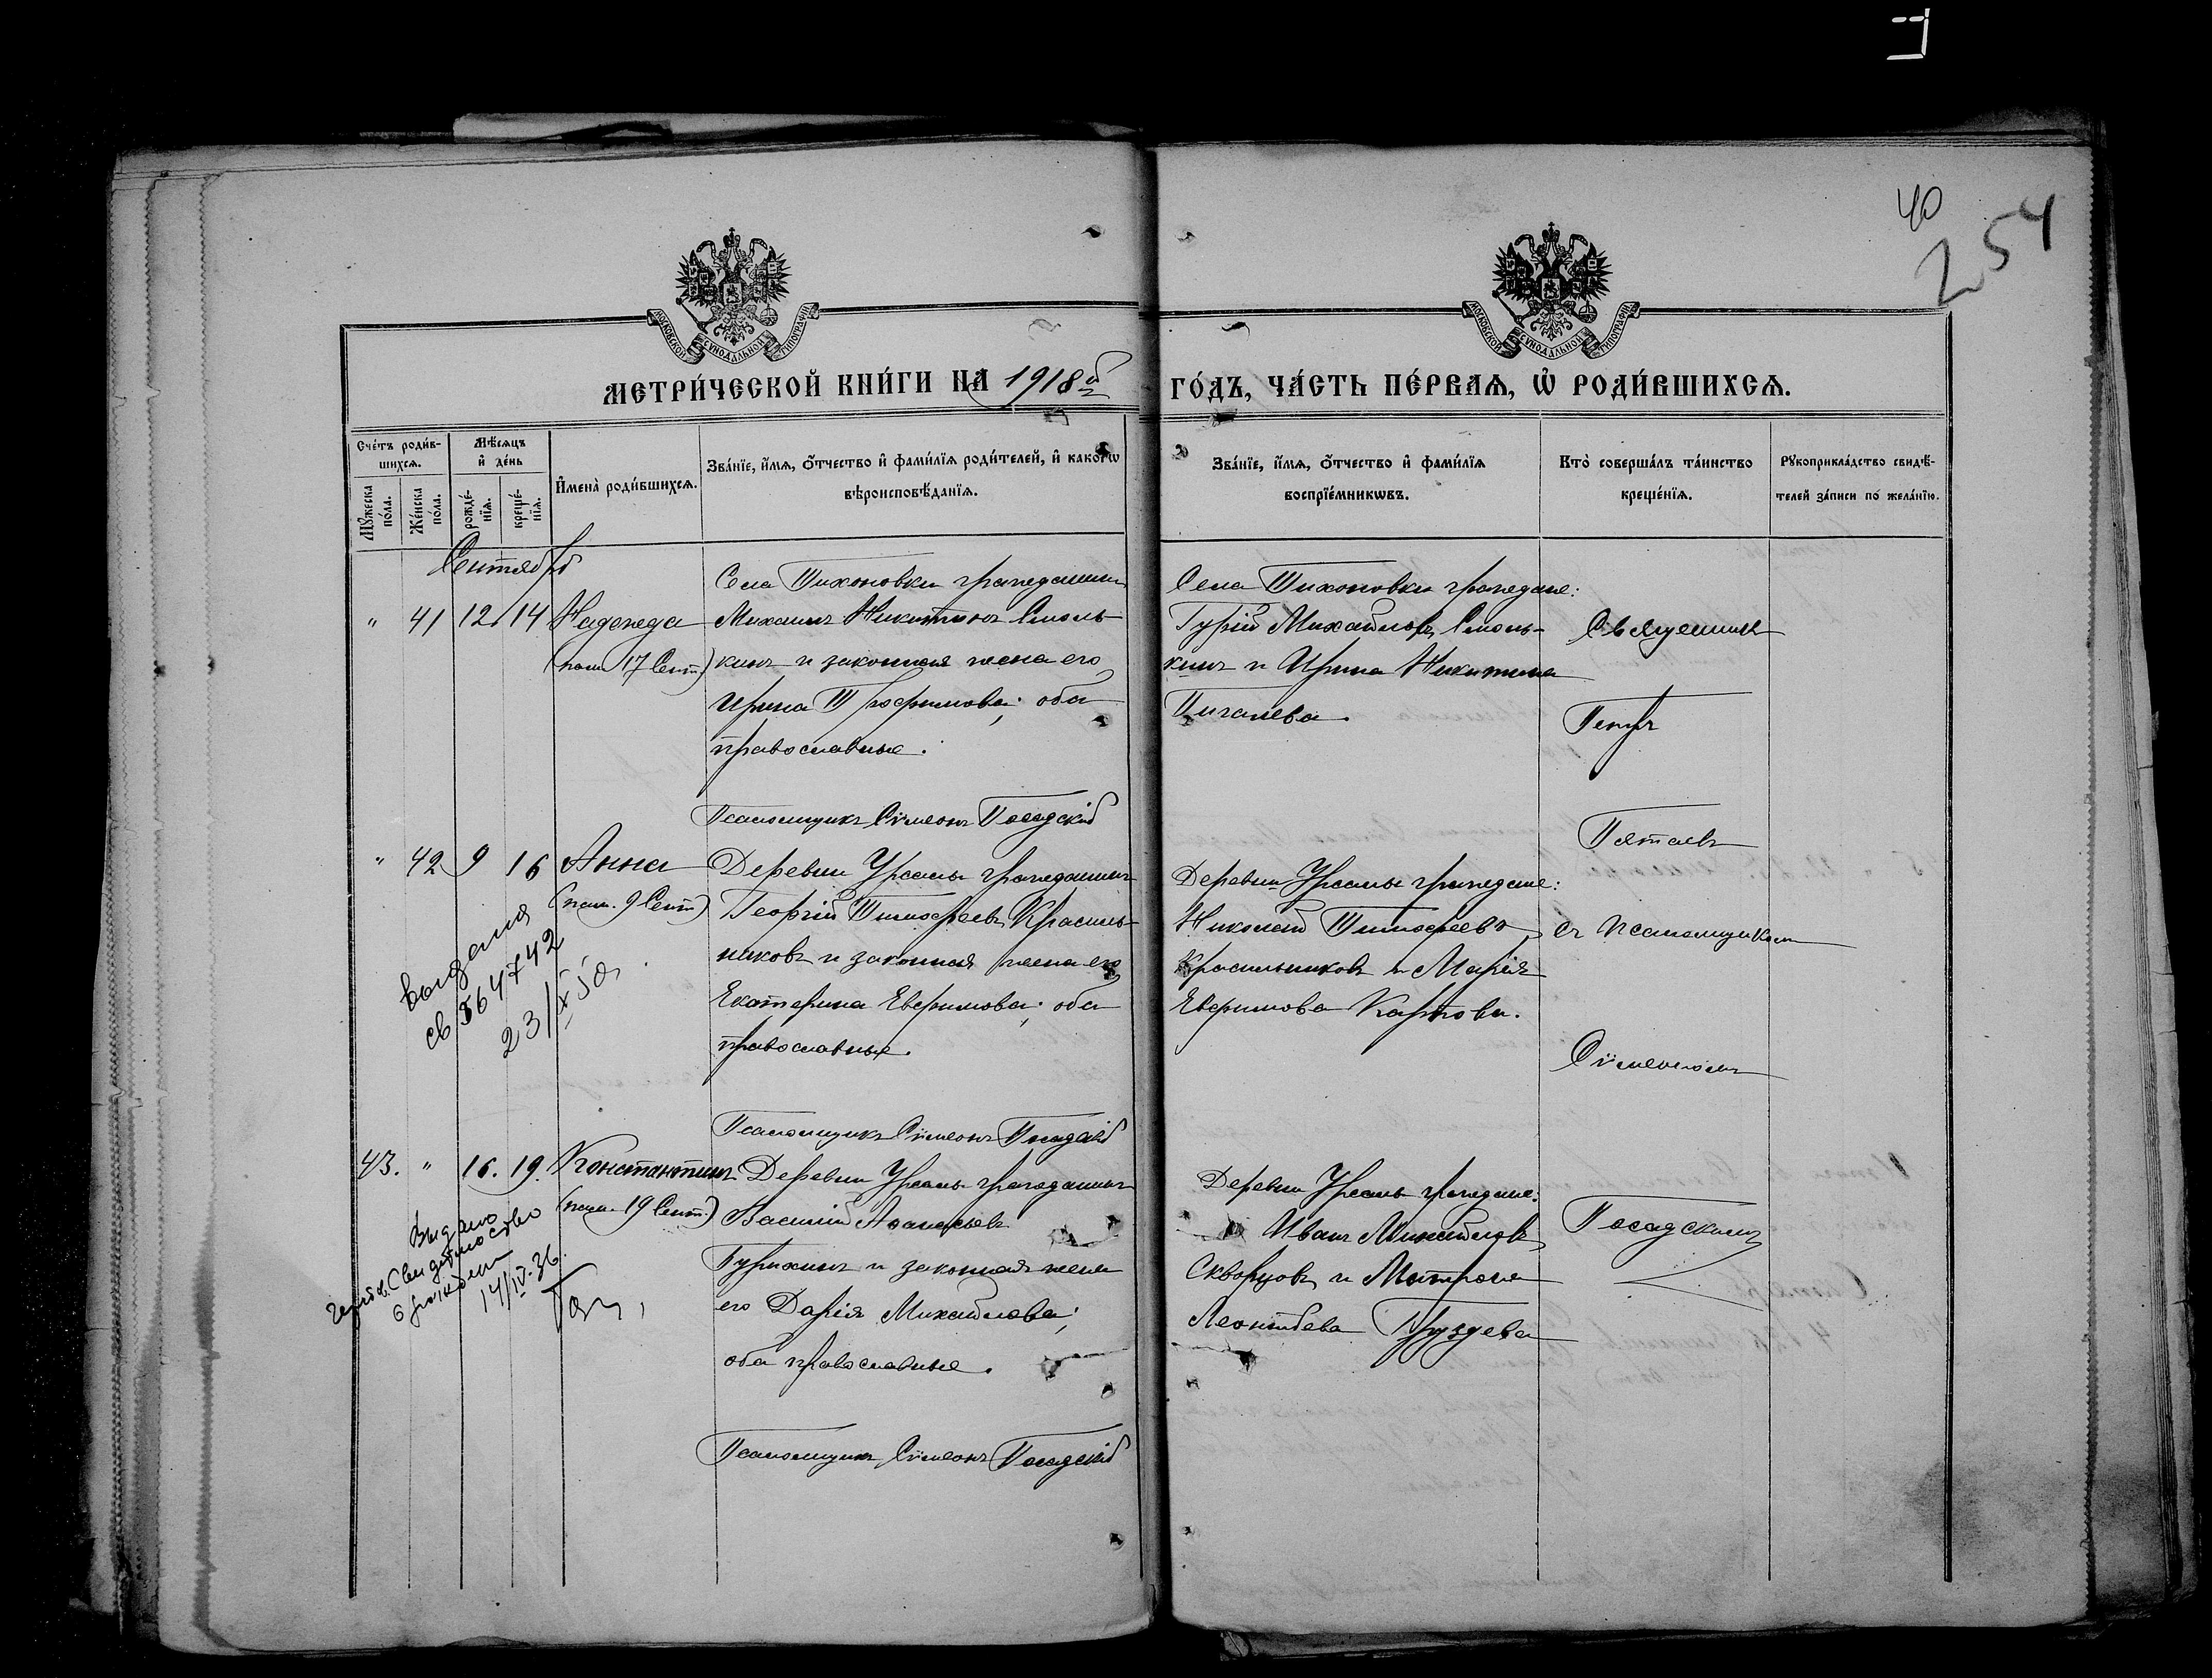 40
254
МОСКОВСКОЙ СѴНОДАЛЬНОЙ ТИПОГРАФІИ
МОСКОВСКОЙ СѴНОДАЛЬНОЙ ТИПОГРАФІИ
МЕТРИ́ЧЕСКОЙ КНИ́ГИ НА 1918й ГО́ДЪ, ЧА́СТЬ ПЕ́РВАѦ, Ѡ҆ РОДИ́ВШИХСѦ.
Сче́тъ роди́в-
шихсѧ.
Мѣ́сѧцъ
и҆ де́нь
Мꙋ́жеска
по́ла.
Же́нска
по́ла.
рожде́-
нїѧ.
креще́-
нїѧ.
И҆мена̀ роди́вшихсѧ.
Зва́нїе, и҆́мѧ, ѻ҆́тчество и҆ фами́лїѧ роди́телей, и҆ како́гѡ
вѣроисповѣ́данїѧ.
Зва́нїе, и҆́мѧ, ѻ҆́тчество и҆ фами́лїѧ
воспрїе́мникѡвъ.
Кто̀ соверша́лъ та́инство
креще́нїѧ.
Рꙋкоприкла́дство свидѣ́-
телей за́писи по жела́нїю.
Сентябрь
" 41 12. 14 Надежда
(пам. 17 Сент.)
Села Тихоновки гражданинъ
Михаилъ Никитинъ Смоль-
кинъ и законная жена его
Ирина Трофимова; оба
православные.
Псаломщикъ Сѵмеонъ Посадскій
Села Тихоновки граждане:
Гурій Михайловъ Смоль-
кинъ и Ирина Никитина
Пигалева.
Священникъ
Петръ
Пятаевъ
съ псаломщикомъ
Сѵмеономъ
Посадскимъ
" 42 9 16 Анна
(пам. 9 Сент.)
выдана
св 564742
23/IX 50.
Деревни Урсалы гражданинъ
Георгій Тимофеевъ Красиль-
никовъ и законная жена его
Екатерина Евфимова; оба
православные.
Псаломщикъ Сѵмеонъ Посадскій
Деревни Урсалы граждане:
Николай Тимофеевъ
Красильниковъ и Марія
Евфимова Карпова.
43. " 16. 19. Константинъ
(пам. 19 Сент.)
Выдано
Свидетельство
о рождении
14/IV-36.
Деревни Урсалы гражданинъ
Василій Аѳанасьевъ
Гурихинъ и законная жена
его Дарія Михайлова;
оба православные.
Псаломщикъ Сѵмеонъ Посадскій
Деревни Урсалы граждане:
Иванъ Михайловъ
Скворцовъ и Матрона
Леонтьева Груздева